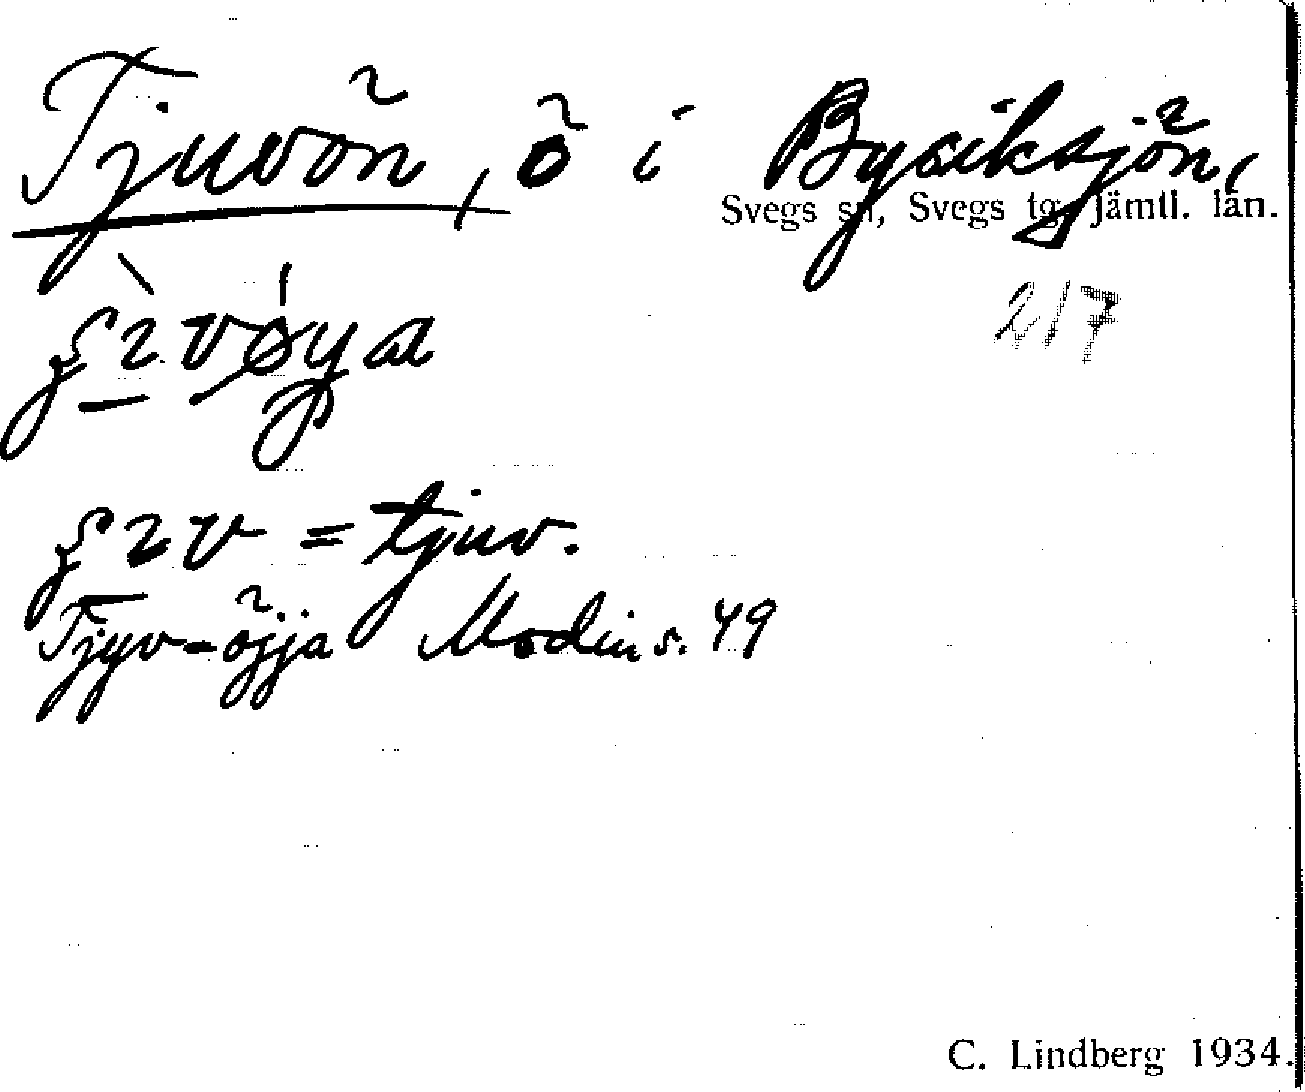 Tjuvön, ö i Bysiksjön,
Svegs sn, Svegs tg, Jämtl. län.
217
= tjuv.
Tjyv-öjja Modin s. 49
C. Lindberg 1934.